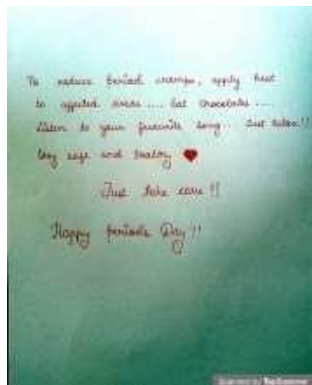 To reduce period cramps, apply heat
to affected areas .... Eat chocolates ....
Listen to your favourite song... Just relax!!
Stay safe and healthy ❤
Just take care !!
Happy periods Day !!